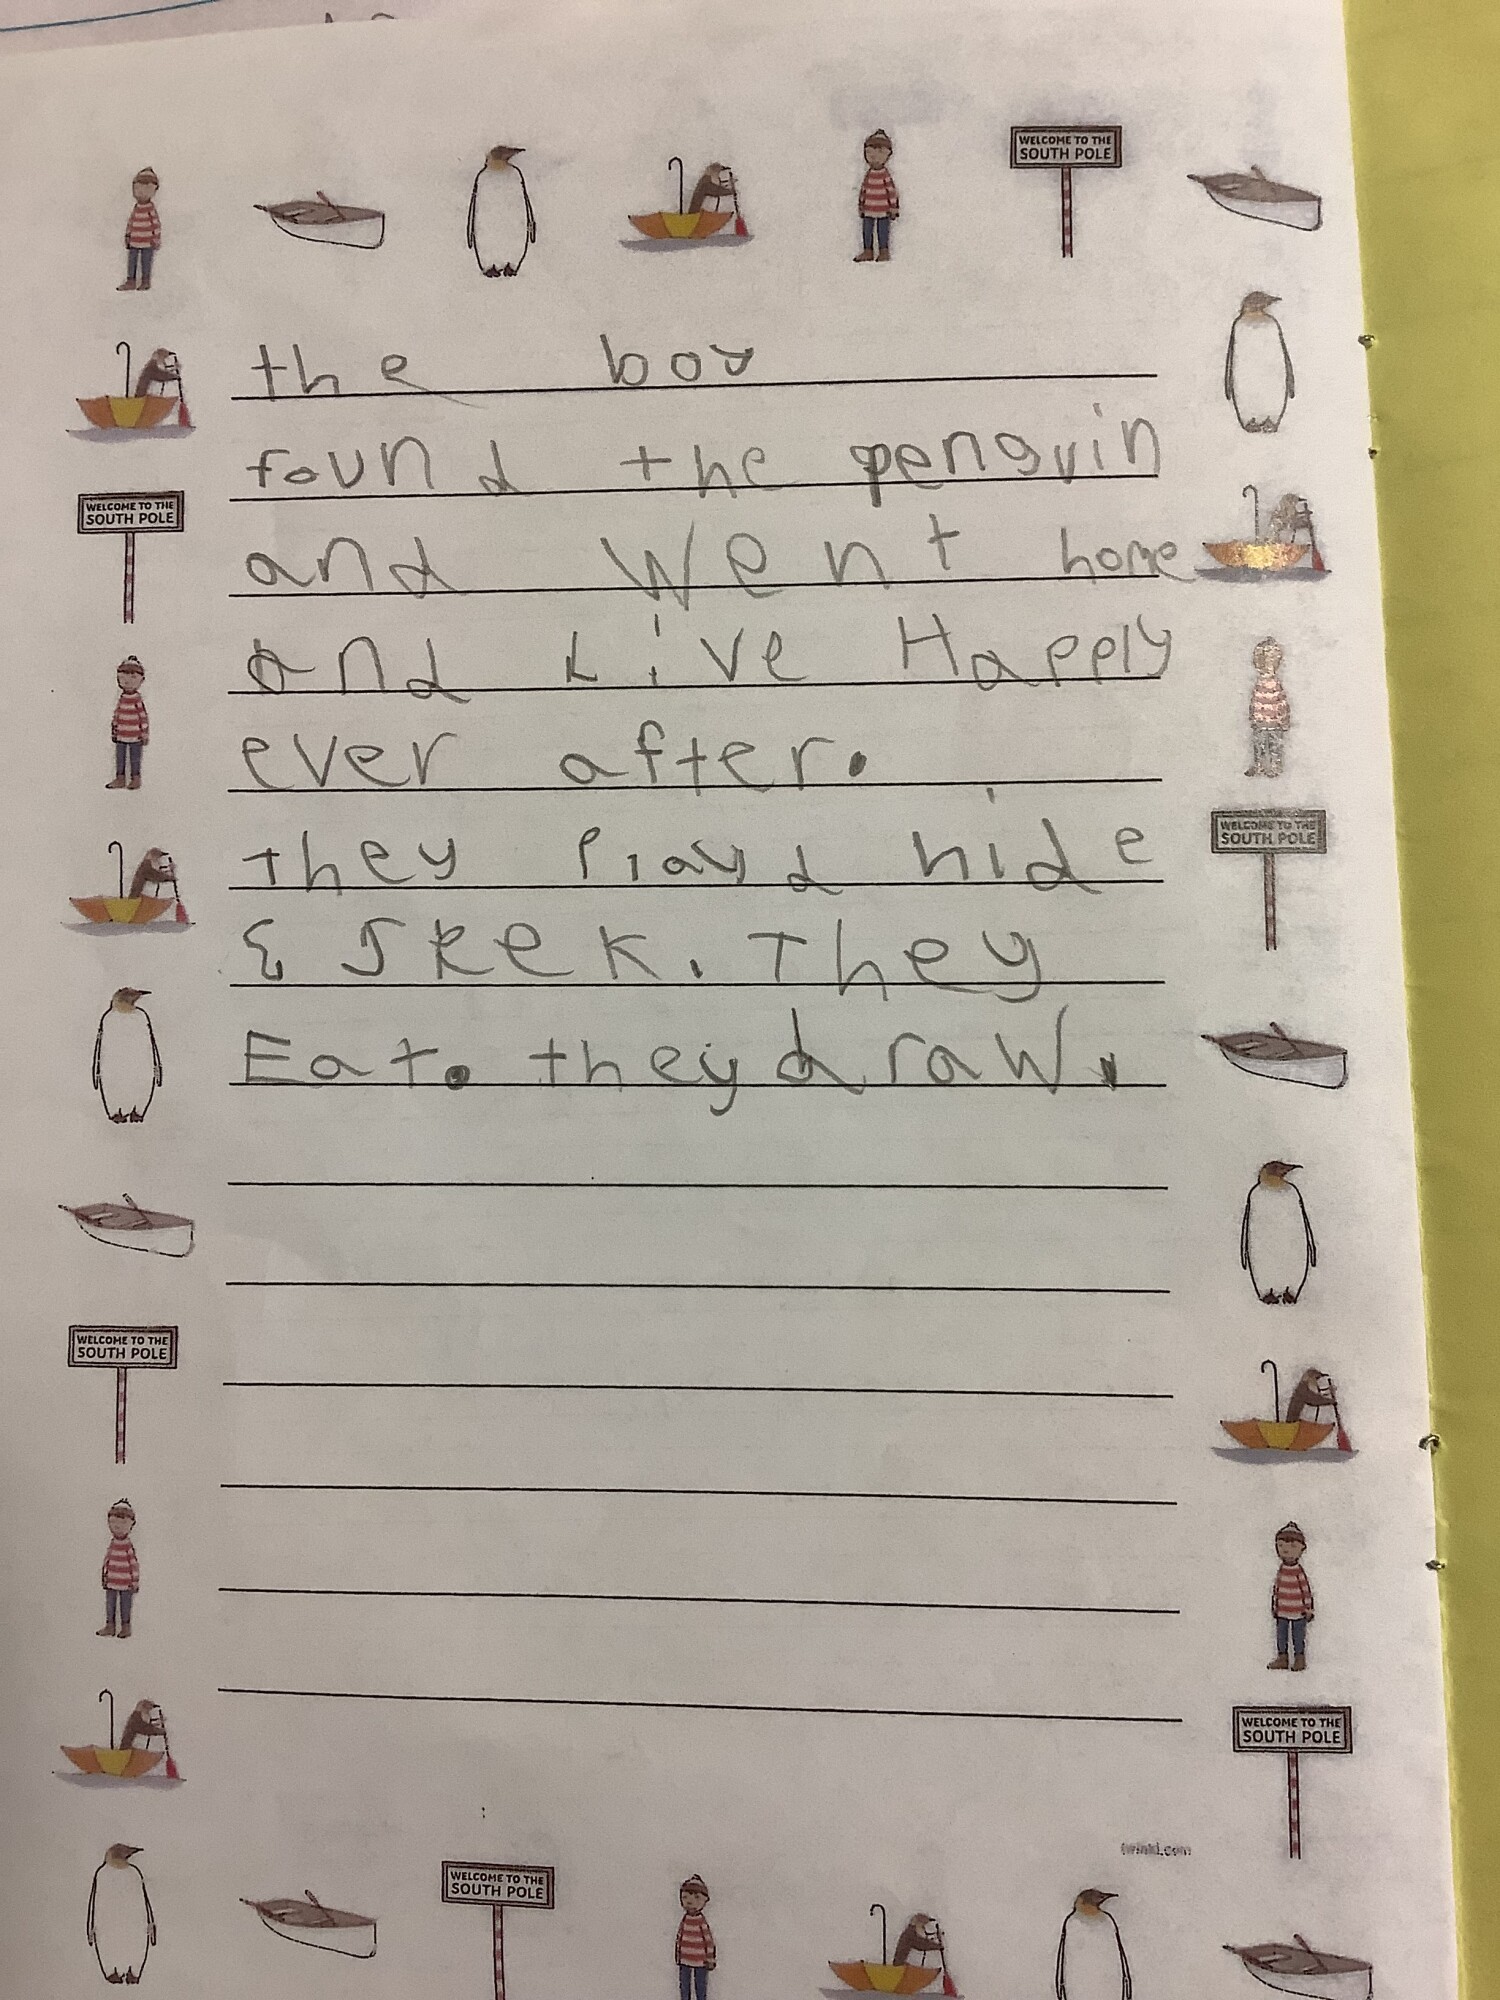 WELCOME TO THE
SOUTH POLE
the boy
WELCOME TO THE
SOUTH POLE
found the penguin
and Went home
and Live Happly
ever after.
WELCOME TO THE
SOUTH POLE
they Playd hide
& Seek. They
Eat. they draw.
WELCOME TO THE
SOUTH POLE
WELCOME TO THE
SOUTH POLE
twinkl.com
WELCOME TO THE
SOUTH POLE